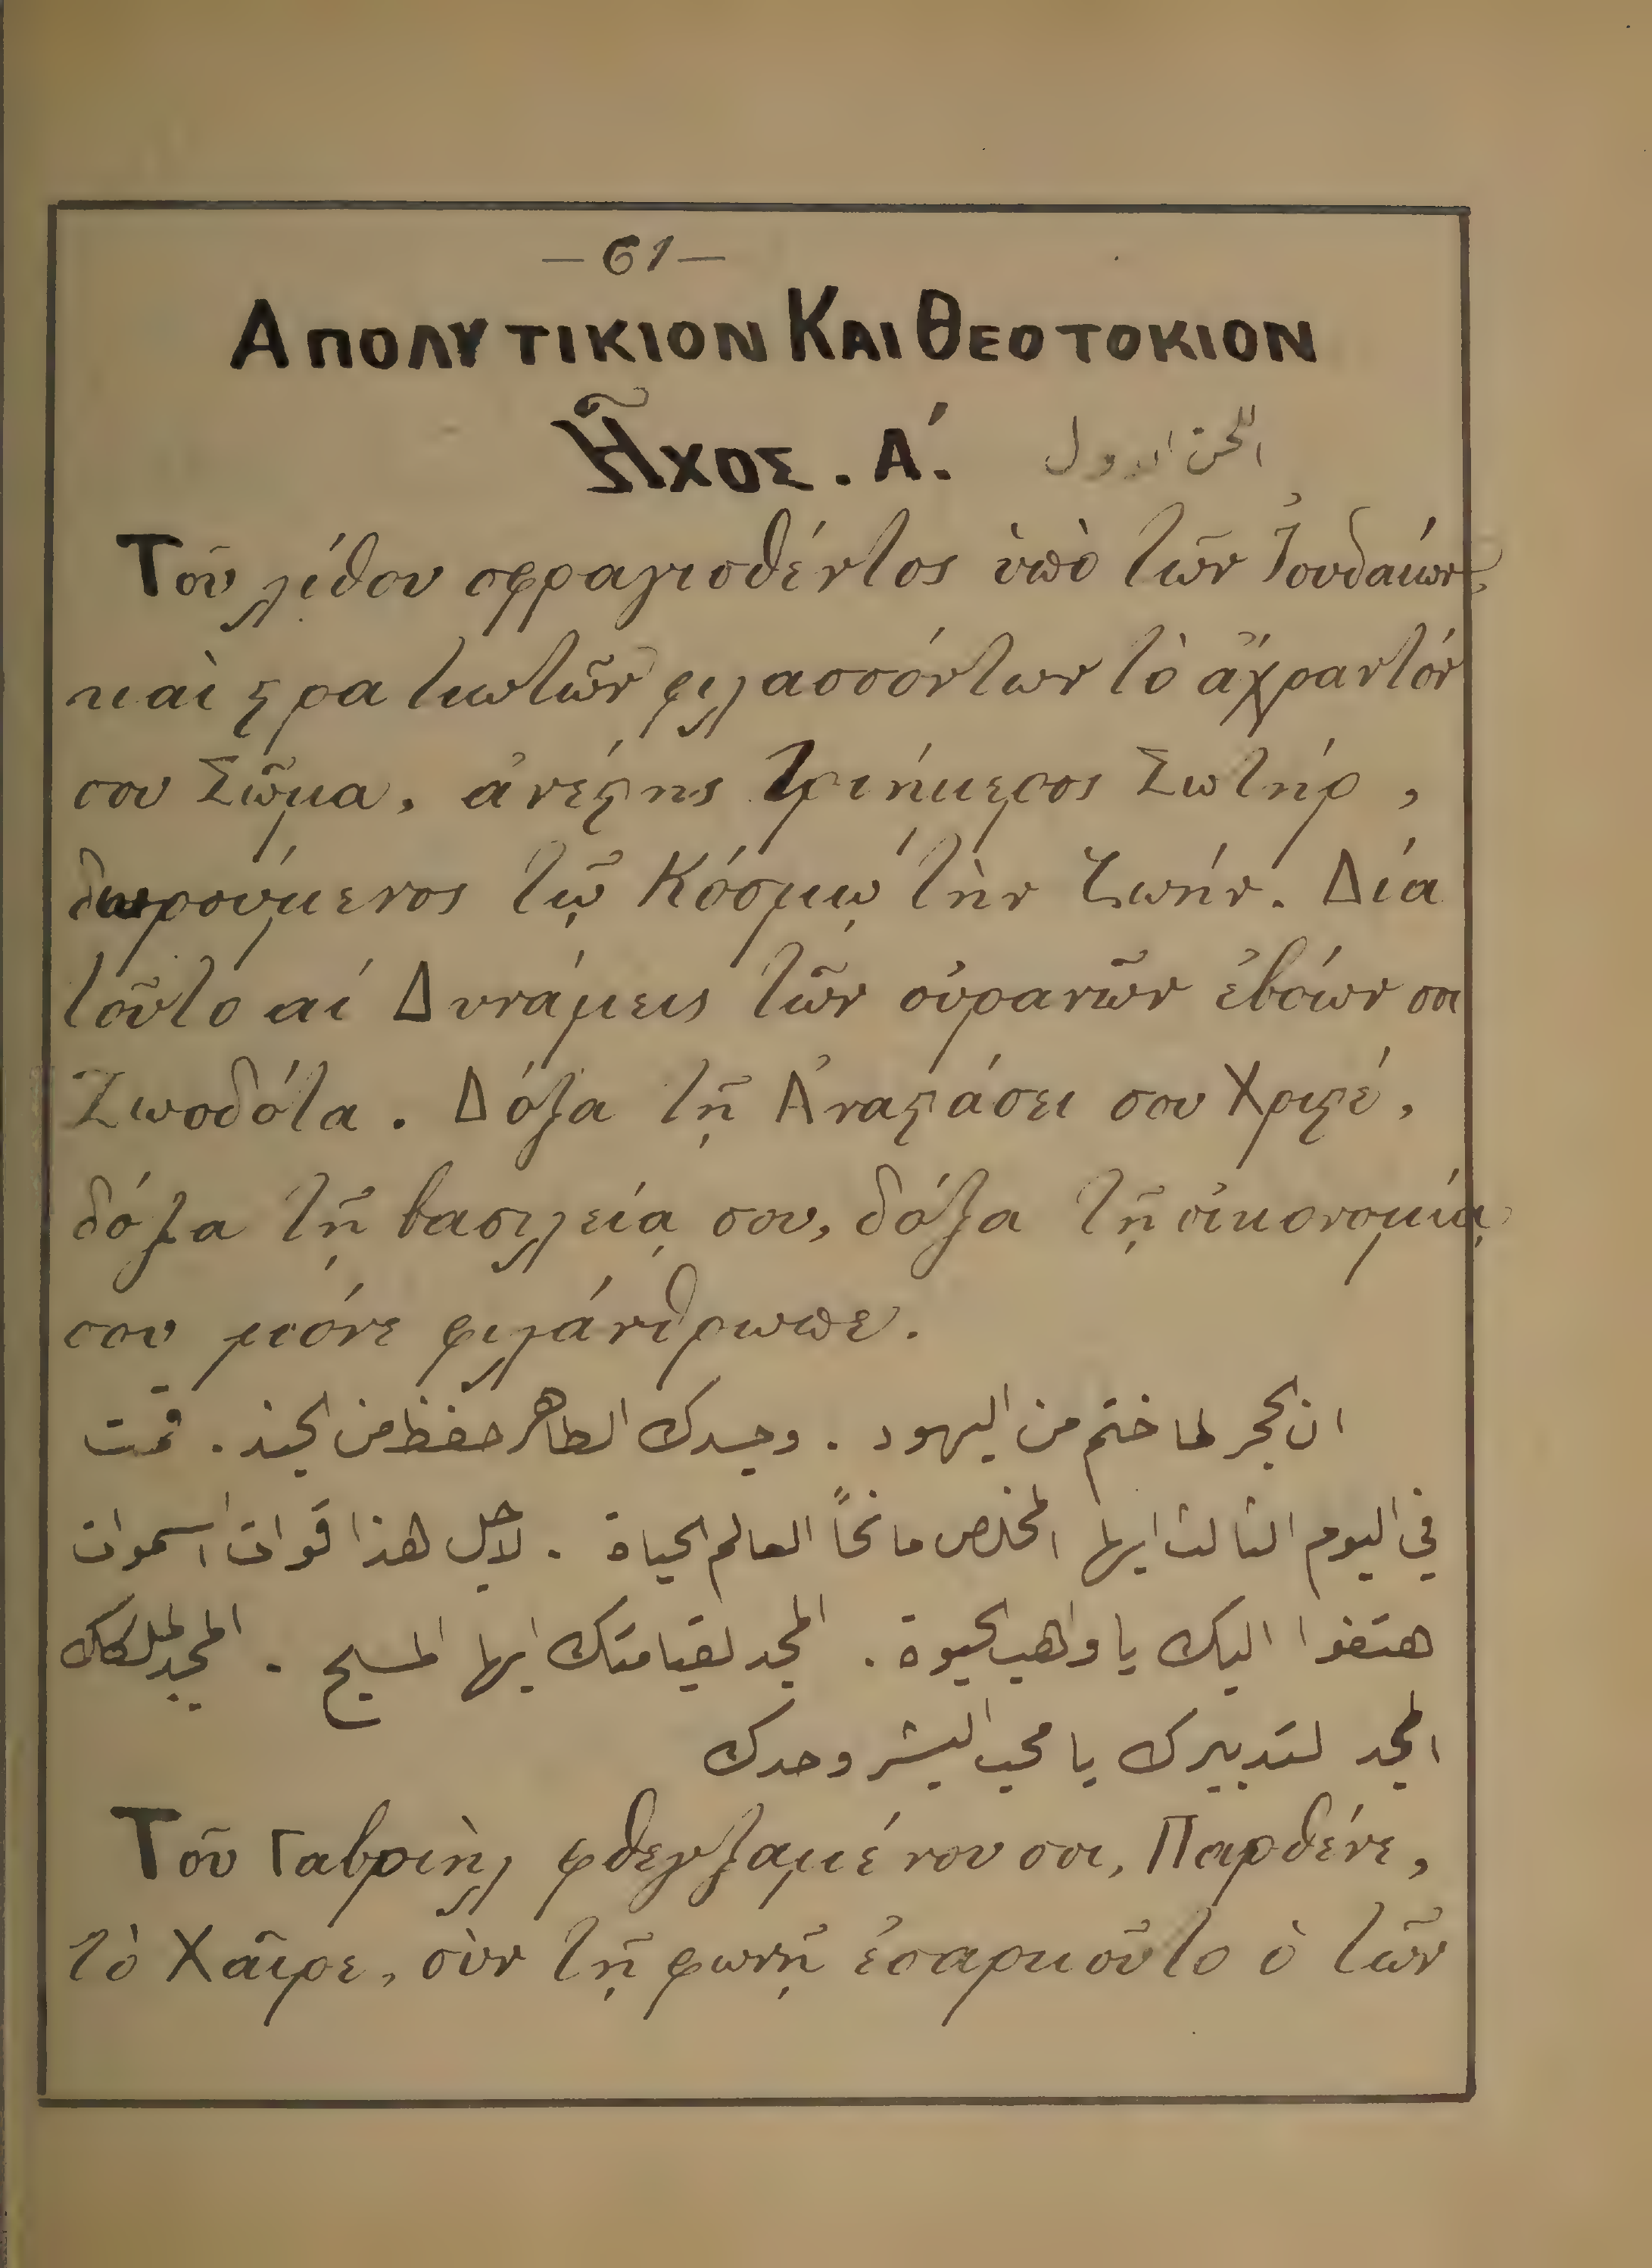 – 61 –
ΑΠΟΛΥΤΙΚΙΟΝ ΚΑΙ ΘΕΟΤΟΚΙΟΝ
Ἦχος. Α΄. اللحن الاول
Τοῦ λίθου σφραγισθέντος ὑπὸ τῶν Ἰουδαίων,
καὶ ϛρατιωτῶν φιλασσόντων τὸ ἄχραντόν
σου Σῶμα, ἀνέϛης τριήμερος Σωτήρ,
δωρούμενος τῷ Κόσμῳ τὴν ζωήν. Διά
τοῦτο αἱ Δυνάμεις τῶν οὐρανῶν ἐβόων σοι
Ζωοδότα. Δόξα τῇ Ἀναϛάσει σου Χριϛέ,
δόξα τῇ βασιλείᾳ σου, δόξα τῇ οἰκονομίᾳ
σου μόνε φιλάνθρωπε.
ان الحجر لما ختم من اليهود . وجسدك الطاهر حفظ من الجند . قمت
في اليوم الثالث ايها المخلص مانحاً العالم الحياة . لاجل هذا قوات السموات
هتفوا اليك يا واهب الحيوة . المجد لقيامتك ايها المسيح . المجد لملكك
المجد لتدبيرك يا محب البشر وحدك
Τοῦ Γαβριὴλ φθεγξαμένου σοι, Παρθένε,
τὸ Χαῖρε, σὺν τῇ φωνῇ ἐσαρκοῦτο ὁ τῶν